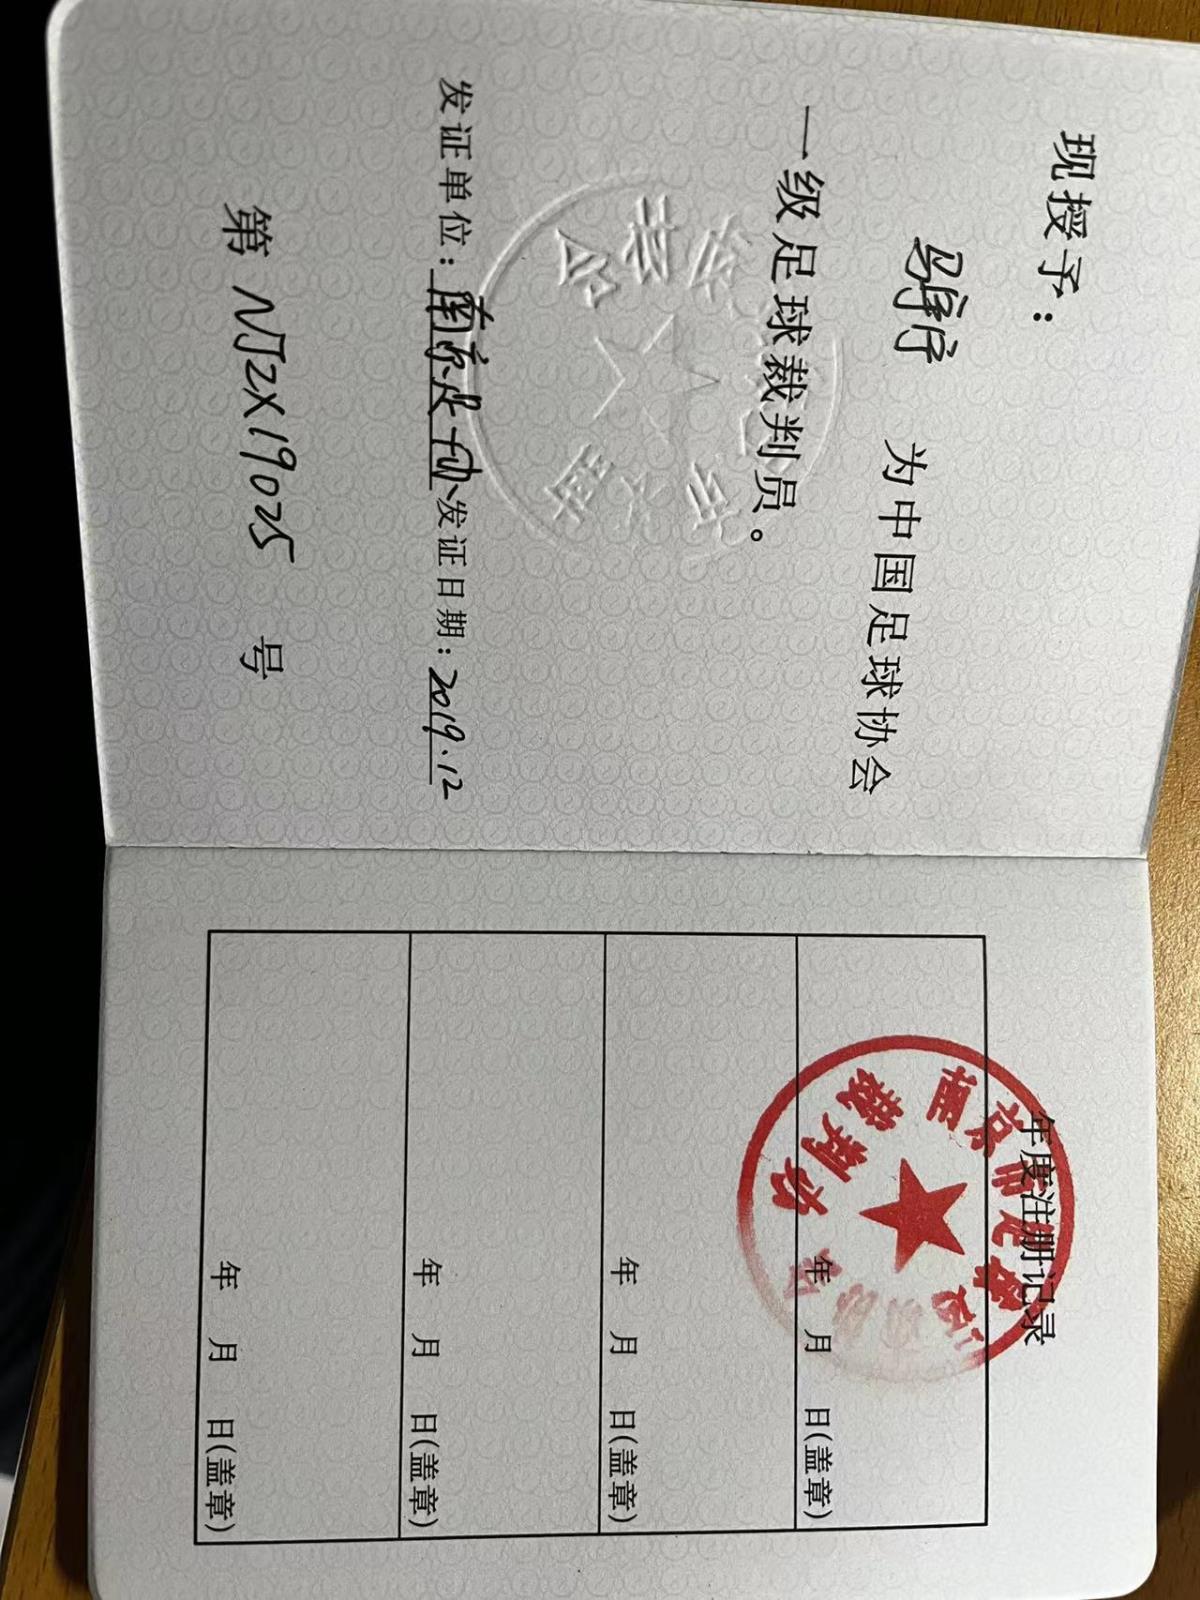 现授予：
为中国足球协会
一级足球裁判员。
发证单位：南京足协 发证日期：2019.12
第 NJZX19025 号
年度注册记录
南京市足球运动协会
裁判办
年 月 日(盖章)
年 月 日(盖章)
年 月 日(盖章)
年 月 日(盖章)